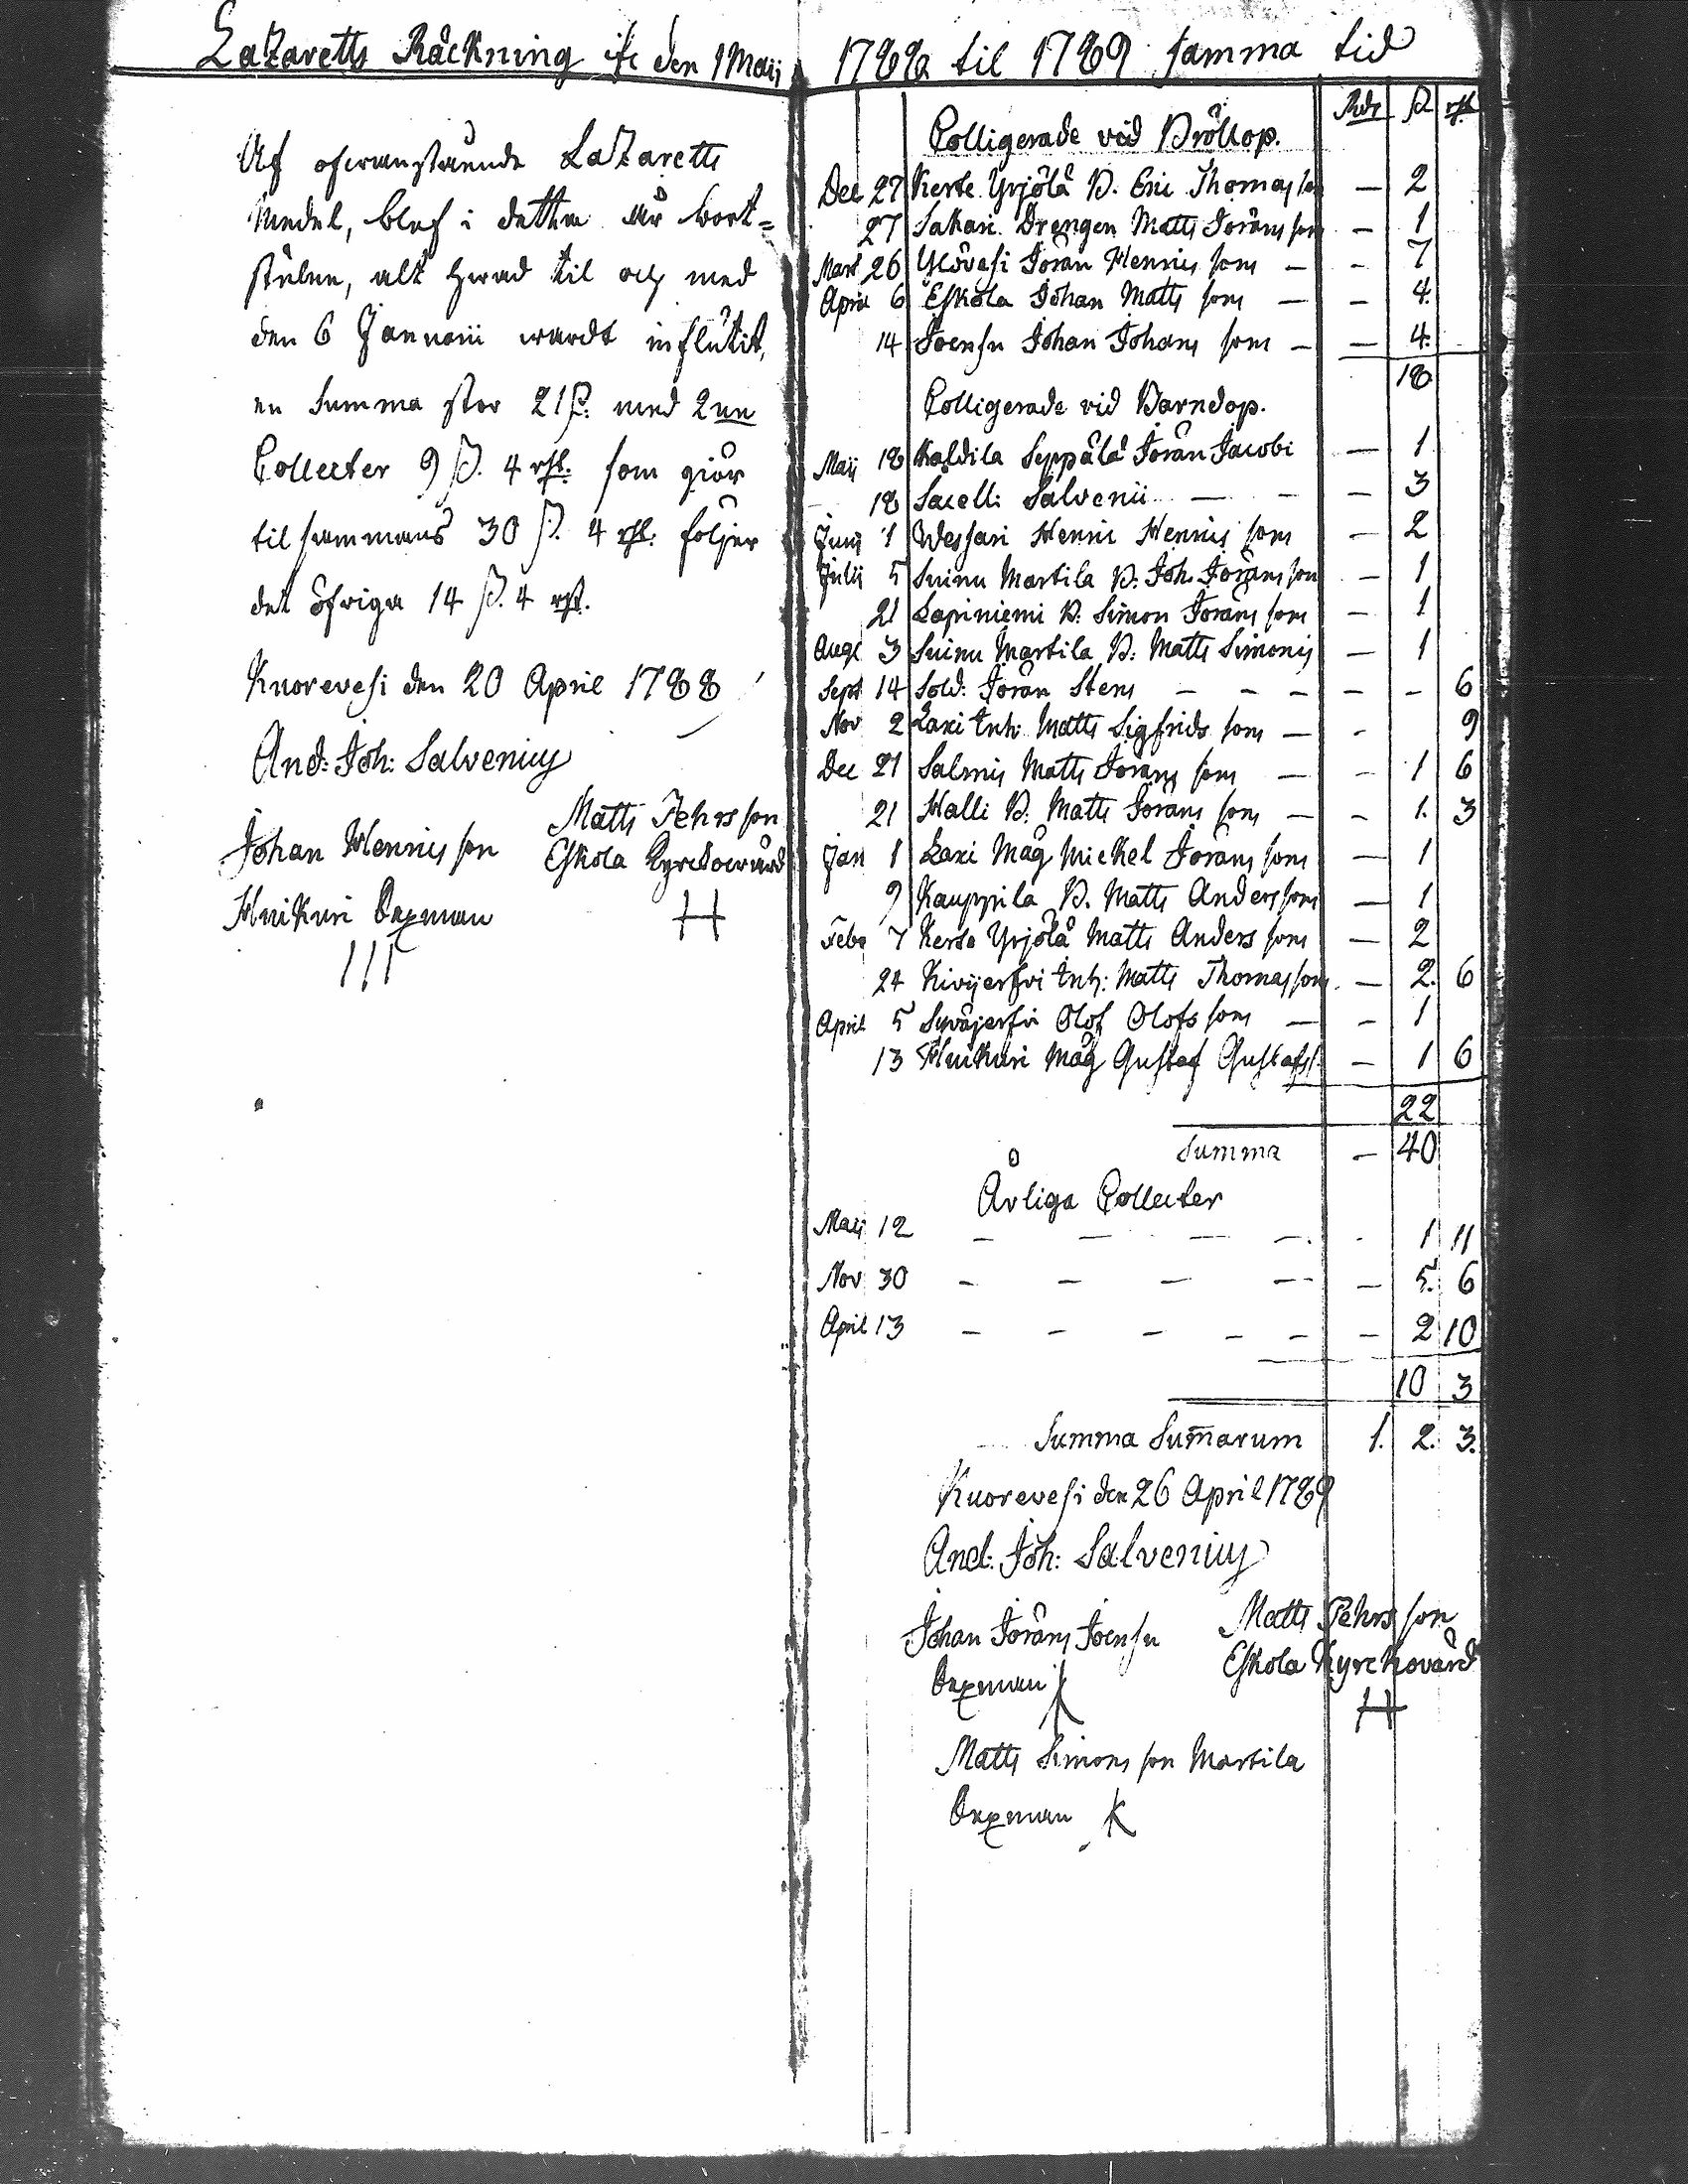 Lazaretts Räckning ifr. den 1 Maij 1788 til 1789 samma tid
Af ofvanstående Lazaretts
Medel, blef i detta år bort=
stulne, alt hvad til och med
den 6 Januarii vardt influtit,
en Summa stor 21 ß. med 2ne
Collecter 9 ß. 4 rst. som giör
tilsammans 30 ß. 4 rst. följer
det öfriga 14 ß. 4 rst.
Kuorevesi den 20 April 1788
And: Joh: Salvenius
Matts Pehrsson
Johan Hennicsson
Eskola Kyrckovärd
Huikuri Sexman
H
III
Rdr ß rst
Colligerade vid Bröllop.
Dec 27 Kerte Yrjölä B. Eric Thomasson — 2
27 Sakari Drengen Matts Jöransson — 1
Mart 26 Ylövesi Jöran Hennics son — - 7
April 6 Eskola Johan Matts son — - 4.
14 Joensu Johan Johans son — — 4.
18
Colligerade vid Barndop.
Maij 18 Kaldila Seppälä Jöran Jacobi — 1
18 Sacell: Salvenii — - — 3
Junij 1 Wessari Henric Hennics son — 2
Julii 5 Suinu Martila B: Joh. Jöransson — 1
21 Lapiniemi B: Simon Jörans son — 1
Augt 3 Suinu Martila B: Matts Simonis — 1
Sept 14 Sold: Jöran Stens — — — — - 6
Nov 2 Laxi Inh: Matts Sigfrids son — - 9
Dec 21 Salmis Matts Jörans son — - 1 6
21 Halli B: Matts Jörans son — - 1. 3
Jan 1 Laxi Måg Mickel Jörans son — 1
9 Kauppila B. Matts Anders son — 1
Febr 7 Kerte Yrjölä Matts Anders son — 2
24 Kivijerfvi Inh: Matts Thomasson — 2. 6
April 5 Syväjerfvi Olof Olofs son — - 1
13 Huikuri Måg Gustaf Gustafss: — 1 6
22
Summa — 40
Årliga Collecter
Maij 12 — — — — - 1 11
Nov 30 - — — — — 5. 6
April 13 — — — — — — 2 10
10 3
Summa Sum̄arum 1. 2. 3.
Kuorevesi den 26 April 1789
And: Joh: Salvenius
Johan Jörans Joensu
Matts Pehrs son
Sexman
Eskola Kyrckovärd
H
Matts Simons son Martila
Sexman K